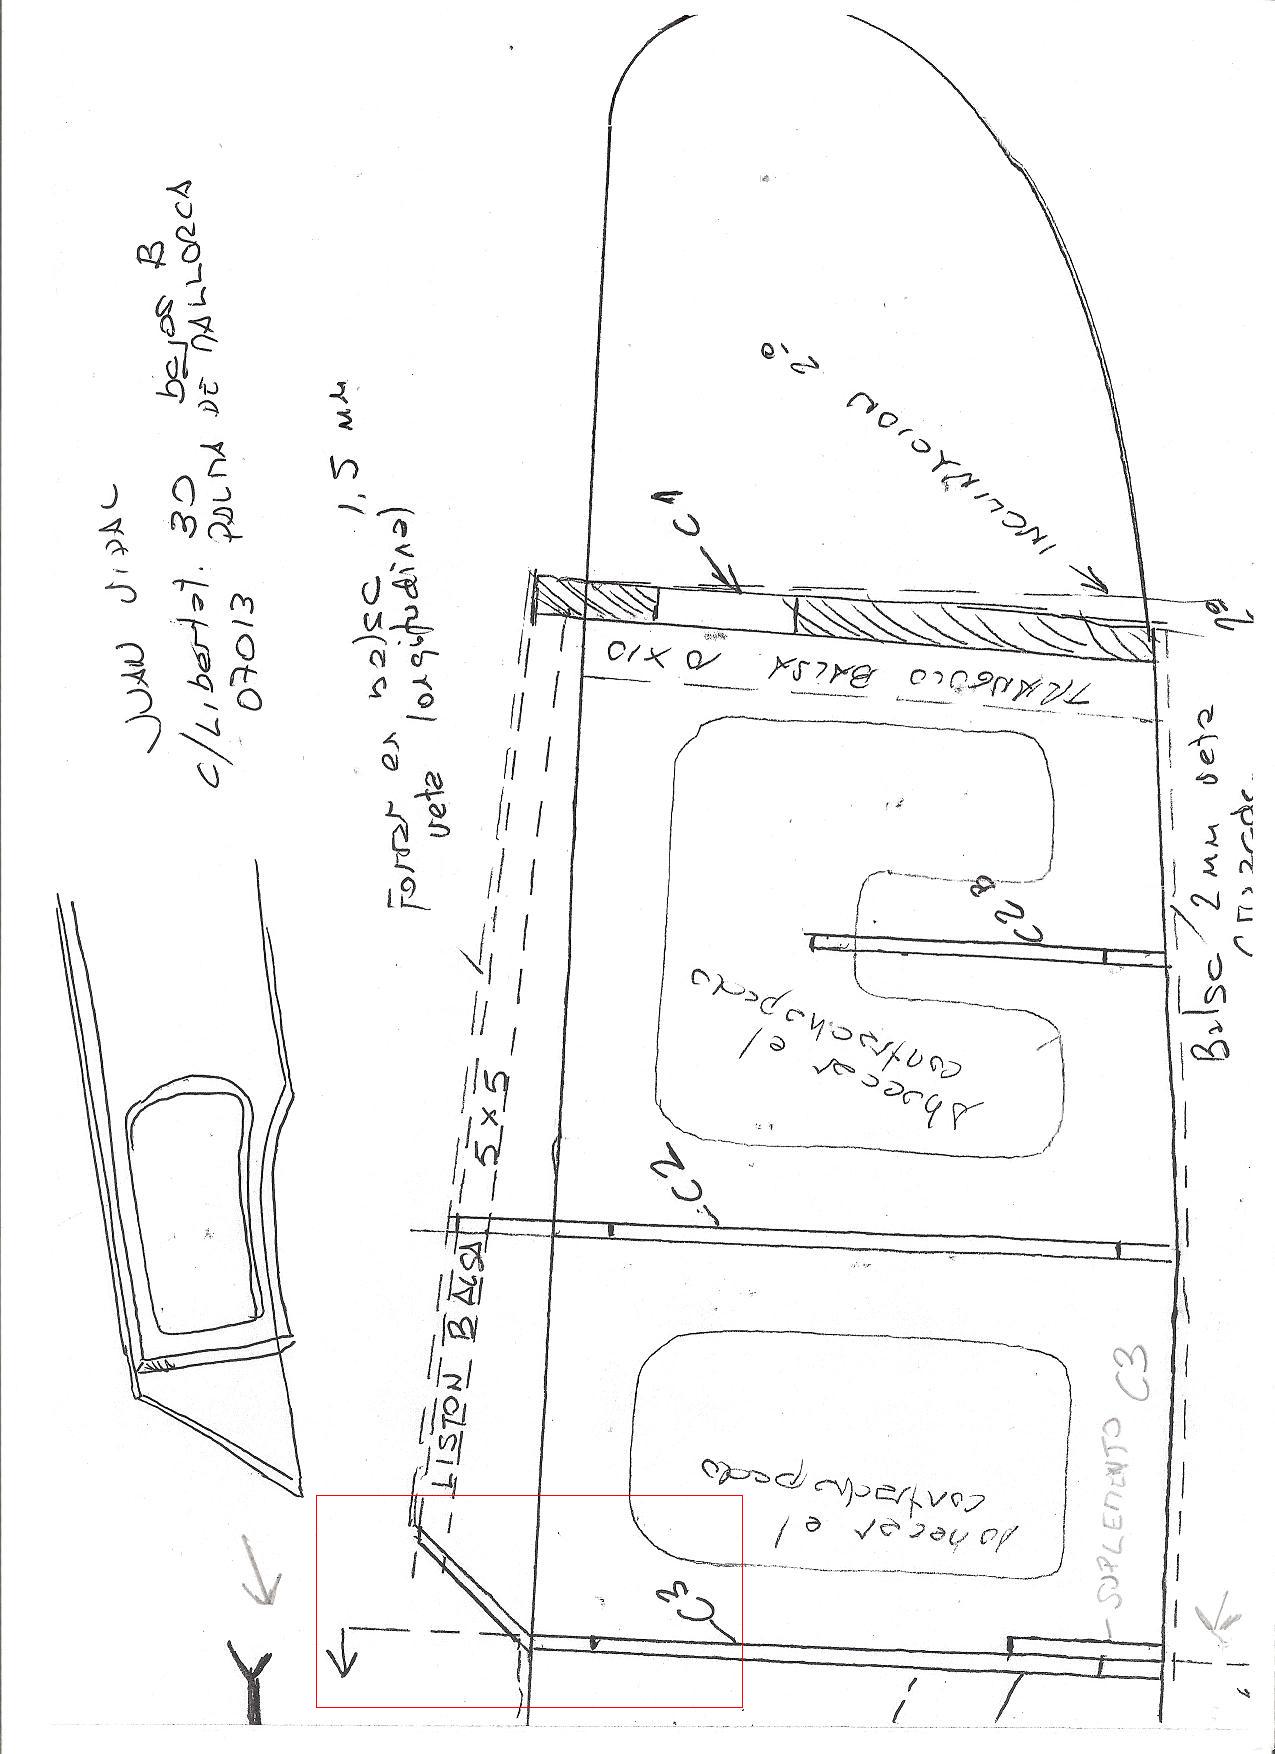 JUAN VIDAL
C/Libertat. 30 bajos B
PALMA DE MALLORCA
07013
Forrar en balsa 1,5 mm
veta longitudinal
C1
INCLINACION 2º
2º
TRIANGULO BALSA 10 X 10
LISTON BALSA 5 x 5
C2B
ahuecar el
contrachapado
C2
Balsa 2 mm veta
cruzada
ahuecar el
contrachapado
C3
- SUPLEMENTO C3